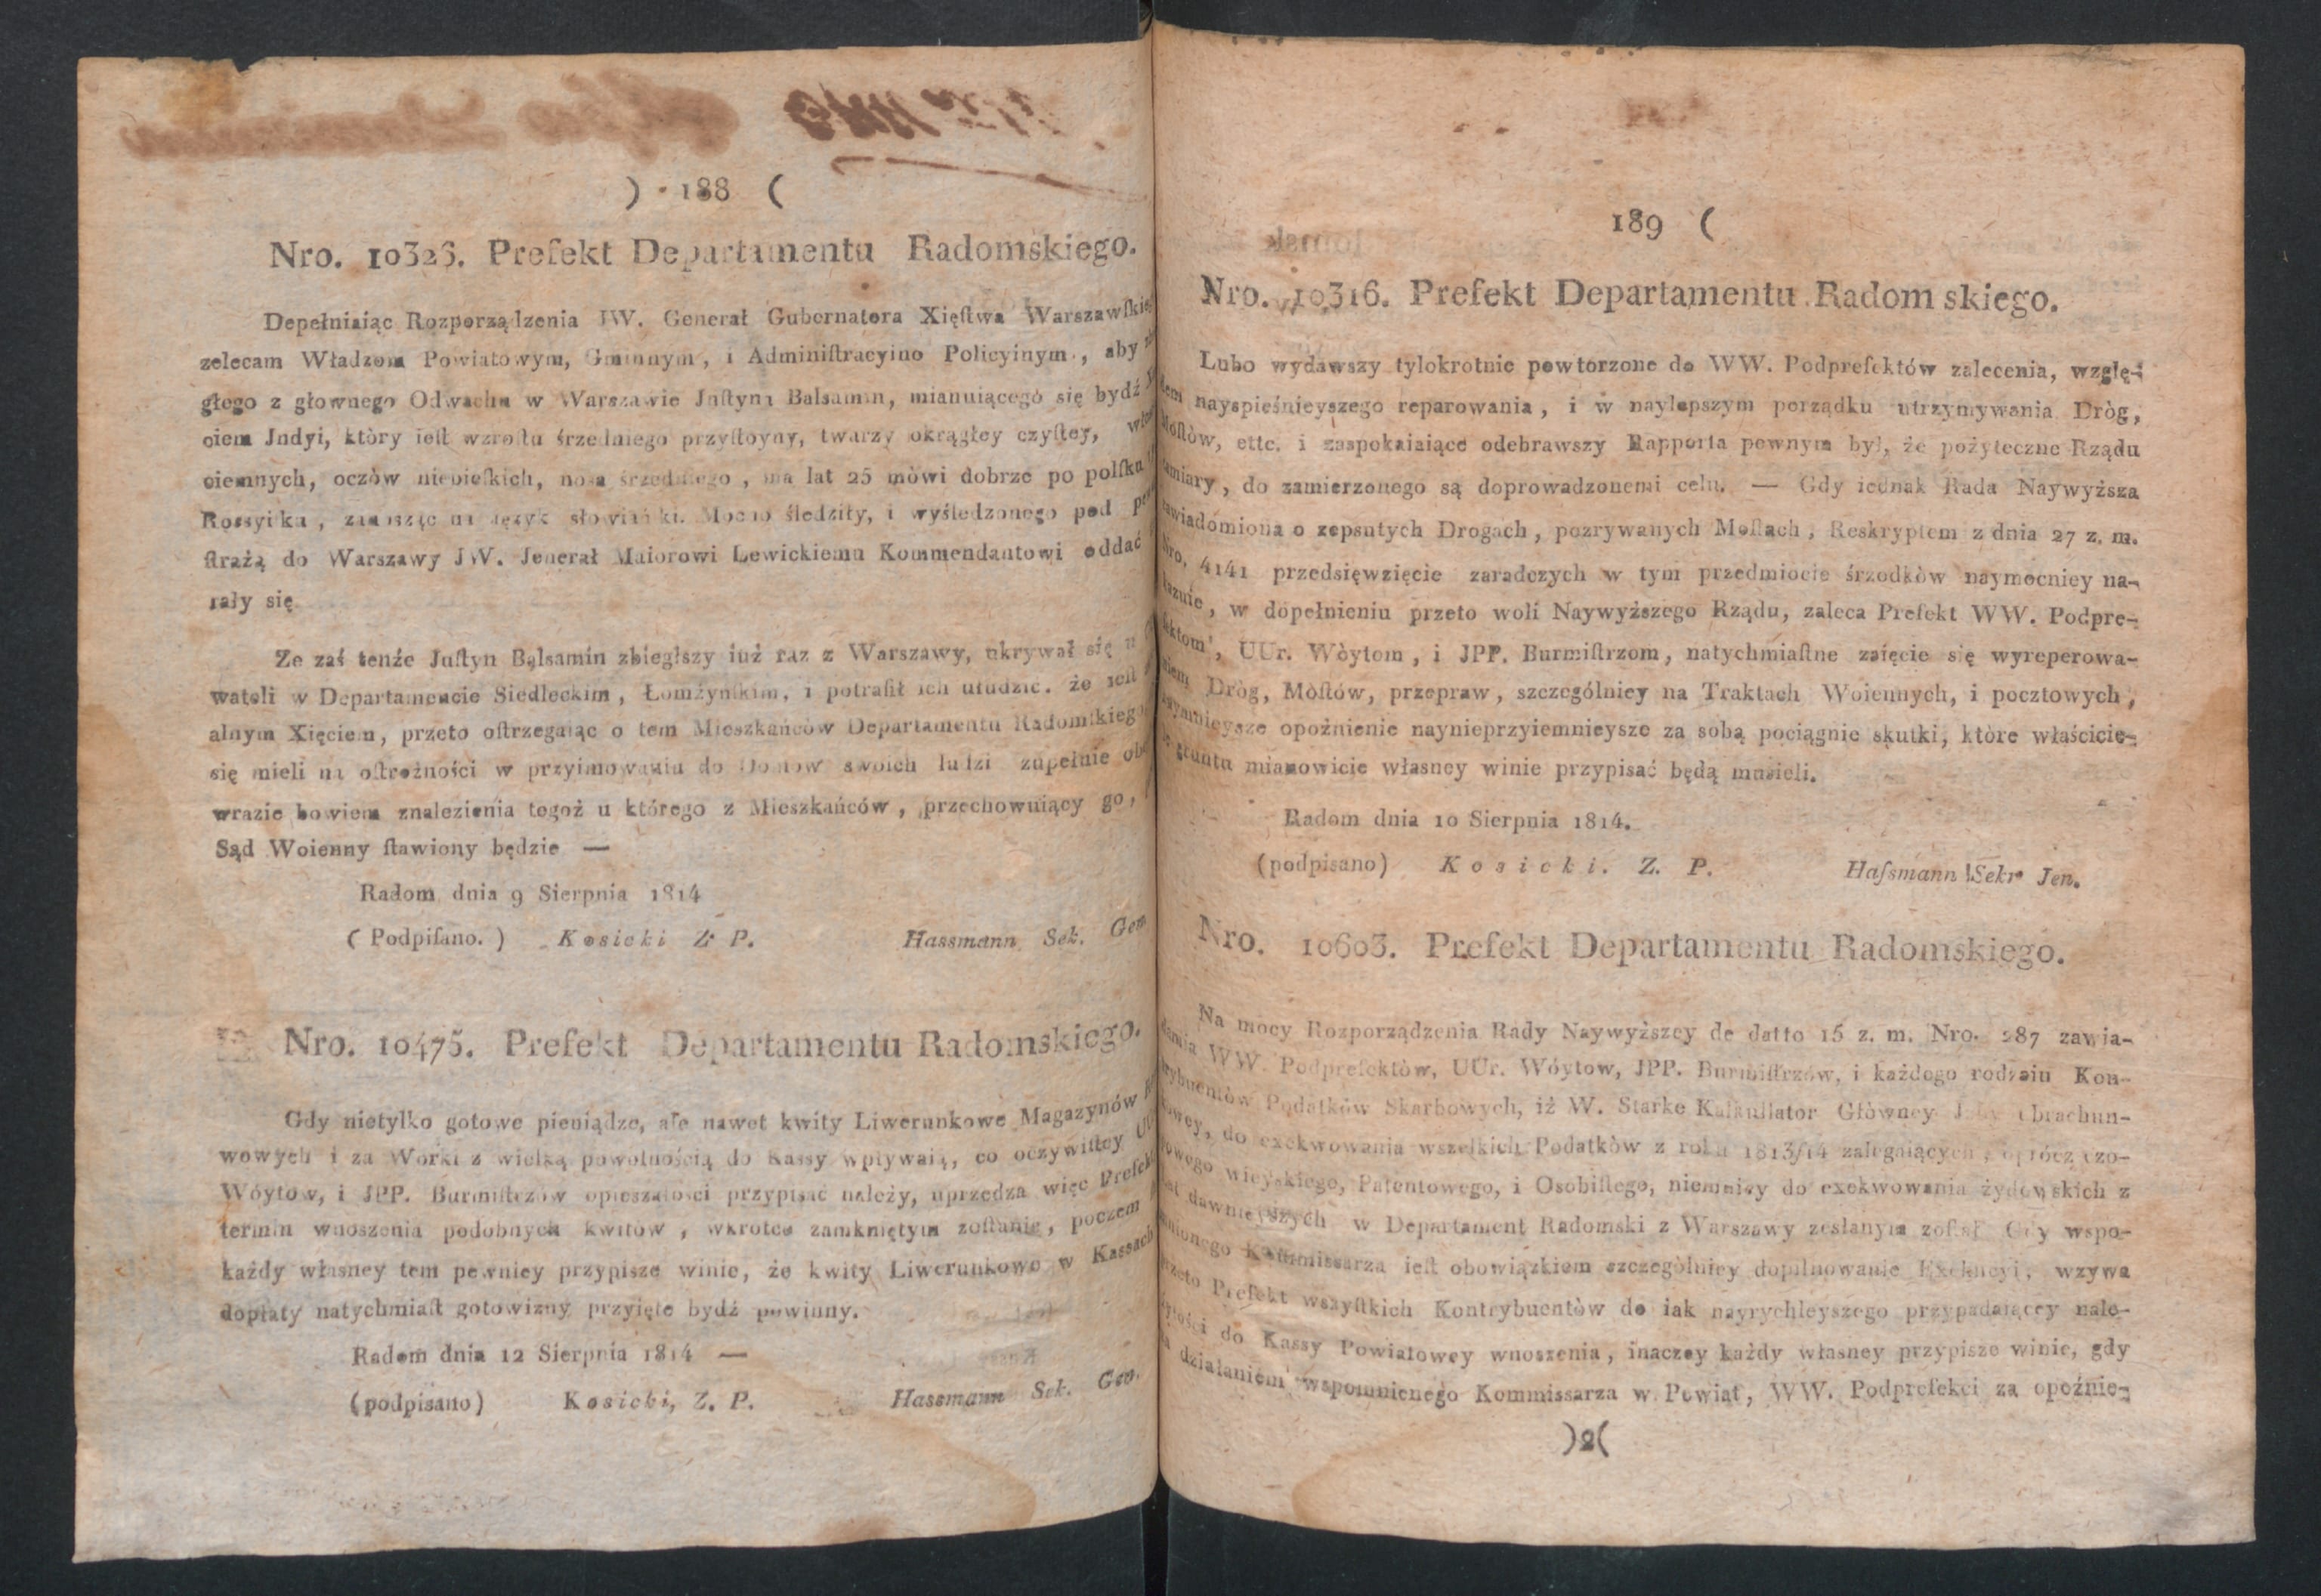 ) 188 (
Nro. 10326. Prefekt Departamentu Radomskiego.
Depełniaiąc Rozporządzenia JW. Generał Gubernatora Xięſtwa Warszawſkie
zelecam Władzom Powiatowym, Gminnym, i Adminiſtracyino Policyinym, aby
głego z głownego Odwachu w Warszawie Juſtyna Balsamin, mianuiącego się bydź
ciem Jndyi, który ieſt wzroſtu śrzedniego przyſtoyny, twarzy okrągłey czyſtey,
ciemnych, oczòw niebieſkich, nosa śrzedniego, ma lat 25 mòwi dobrze po polſku
Rossyiku, znaisząc na ięzyk słowiańki. Mocno śledziły, i wyśledzonego pod
ſtrażą do Warszawy JW. Jenerał Maiorowi Lewickiemu Kommendantowi oddać
rały się
Ze zaś tenże Juſtyn Balsamin zbiegłszy iuż raz z Warszawy, ukrywał się u
wateli w Departamencie Siedleckim, Łomżyńſkim, i potrafił ich ułudzić. że ieſt
alnym Xięciem, przeto oſtrzegaiąc o tem Mieszkańców Departamentu Radomſkiego
się mieli na oſtrożności w przyimowaniu do Domow swoich ludzi zupełnie
wrazie bowiem znalezienia tegoż u którego z Mieszkańców, przechowuiący go,
Sąd Woienny ſtawiony będzie —
Radom dnia 9 Sierpnia 1814
( Podpiſano. ) Kosicki Z. P. Hassmann Sek. Gen
Nro. 10475. Prefekt Departamentu Radomskiego.
Gdy nietylko gotowe pieniądze, ale nawet kwity Liwerunkowe Magazynów
wowych i za Worki z wielką powolnością do Kassy wpływaią, co oczywiſtey
Wóytow, i JPP. Burmiſtrzòw opieszałości przypisać należy, uprzedza więc Prefek
termin wnoszenia podobnych kwitòw, wkrotce zamkniętym zoſtanie, poczem
każdy własney tem pewniey przypisze winie, że kwity Liwerunkowe w Kassach
dopłaty natychmiaſt gotowizny przyięte bydź powinny.
Radom dnia 12 Sierpnia 1814 —
(podpisano) Kosicki, Z. P. Hassmann Sek. Gen.
189 (
Nro. 10316. Prefekt Departamentu Radom skiego.
Lubo wydawszy tylokrotnie powtorzone do WW. Podprefektów zalecenia, wzglę-
dem nayspieśnieyszego reparowania, i w naylepszym porządku utrzymywania Dròg,
Moſtòw, ettc. i zaspokaiaiące odebrawszy Rapporta pewnym był, że pożyteczne Rządu
zamiary, do zamierzonego są doprowadzonemi celu. — Gdy iednak Rada Naywyższa
zawiadomiona o zepsutych Drogach, pozrywanych Moſtach, Reskryptem z dnia 27 z. m.
Nro. 4141 przedsięwzięcie zaradczych w tym przedmiocie śrzodkòw naymocniey na-
kazuie, w dopełnieniu przeto woli Naywyższego Rządu, zaleca Prefekt WW. Podpre-
fektom, UUr. Wòytom, i JPP. Burmiſtrzom, natychmiaſtne zaięcie się wyreperowa-
niem Dròg, Mòſtów, przepraw, szczególniey na Traktach Woiennych, i pocztowych,
naymnieysze opoźnienie naynieprzyiemnieysze za sobą pociągnie skutki, ktòre właścicie-
le gruntu mianowicie własney winie przypisać będą musieli.
Radom dnia 10 Sierpnia 1814.
(podpisano) Kosicki. Z. P. Haſsmann Sekr Jen.
Nro. 10603. Prefekt Departamentu Radomskiego.
Na mocy Rozporządzenia Rady Naywyższey de datto 15 z. m. Nro. 287 zawia-
damia WW. Podprefektòw, UUr. Wóytow, JPP. Burmiſtrzów, i każdego rodzaiu Kon-
trybuentòw Podatkòw Skarbowych, iż W. Starke Kalkullator Głòwney Jzby Obrachun-
kowey, do exekwowania wszelkich Podatkòw z roku 1813/14 zalegaiących, oprócz czo-
powego wieyskiego, Patentowego, i Osobiſtego, niemniey do exekwowania żydowskich z
lat dawnieyszych w Departament Radomski z Warszawy zesłanym zoſtał. Gdy wspo-
mnionego Kommissarza ieſt obowiązkiem szczegòlniey dopilnowanie Exekucyi, wzywa
przeto Prefekt wszyſtkich Kontrybuentòw do iak nayrychleyszego przypadaiącey nale-
żytości do Kassy Powiatowey wnoszenia, inaczey każdy własney przypisze winie, gdy
za działaniem wspomnienego Kommissarza w Powiat, WW. Podprefekci za opoźnie-
)2(